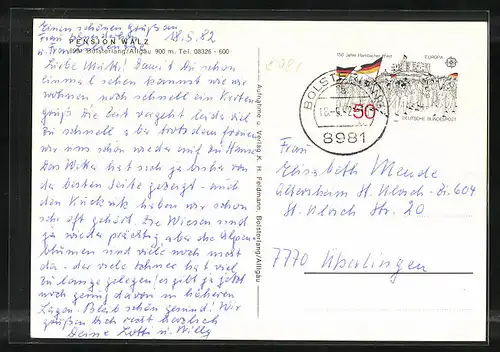 Einen schönen Gruß an
Frau
u. Frau
18.5.82
PENSION WALZ
8981 Bolsterlang/Allgäu 900 m. Tel. 08326 - 600
Liebe Mutti! Damit Du schon
einmal sehen kannst wie wir
wohnen noch schnell ein Karten-
gruß. Die Zeit vergeht leider viel
zu schnell, aber trotzdem freuen
wir uns schon wieder auf zu Hause.
Das Wetter hat sich ja bisher von
der besten Seite gezeigt - und
den Kuckuck haben wir schon
sehr oft gehört. Die Wiesen sind
ja wieder prächtig, aber die Alpen-
blumen sind viele noch nicht
da - der viele Schnee hat viel
zu lange gelegen (es gibt ja jetzt
noch genug davon in höheren
Lagen. Bleib schön gesund! Wir
grüßen Dich recht herzlich
Deine Lotti u. Willy
Aufnahme u. Verlag K. H. Feldmann, Bolsterlang/Allgäu
150 Jahre Hambacher Fest
EUROPA
50
DEUTSCHE BUNDESPOST
8981
Frau
Elisabeth Mende
Altersheim St. Ulrich - Zi. 604
St. Ulrich Str. 20
7770 Überlingen